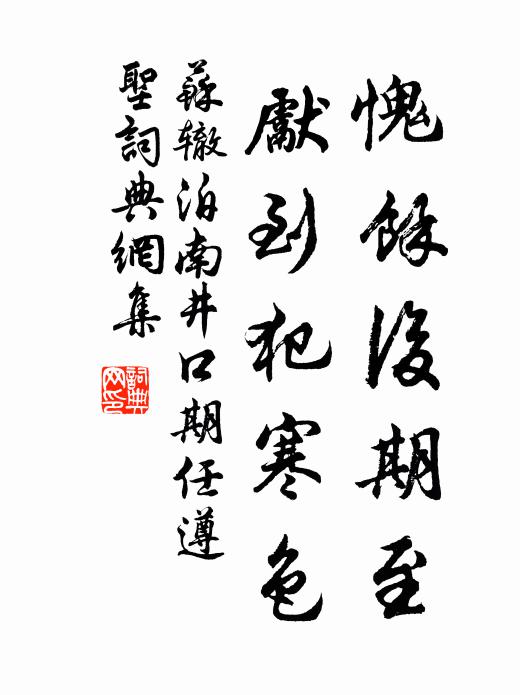 愧餘後期至
獻到犯寒色
蘇辙泊南井口期任遵
聖詞典網集
詞典
网印